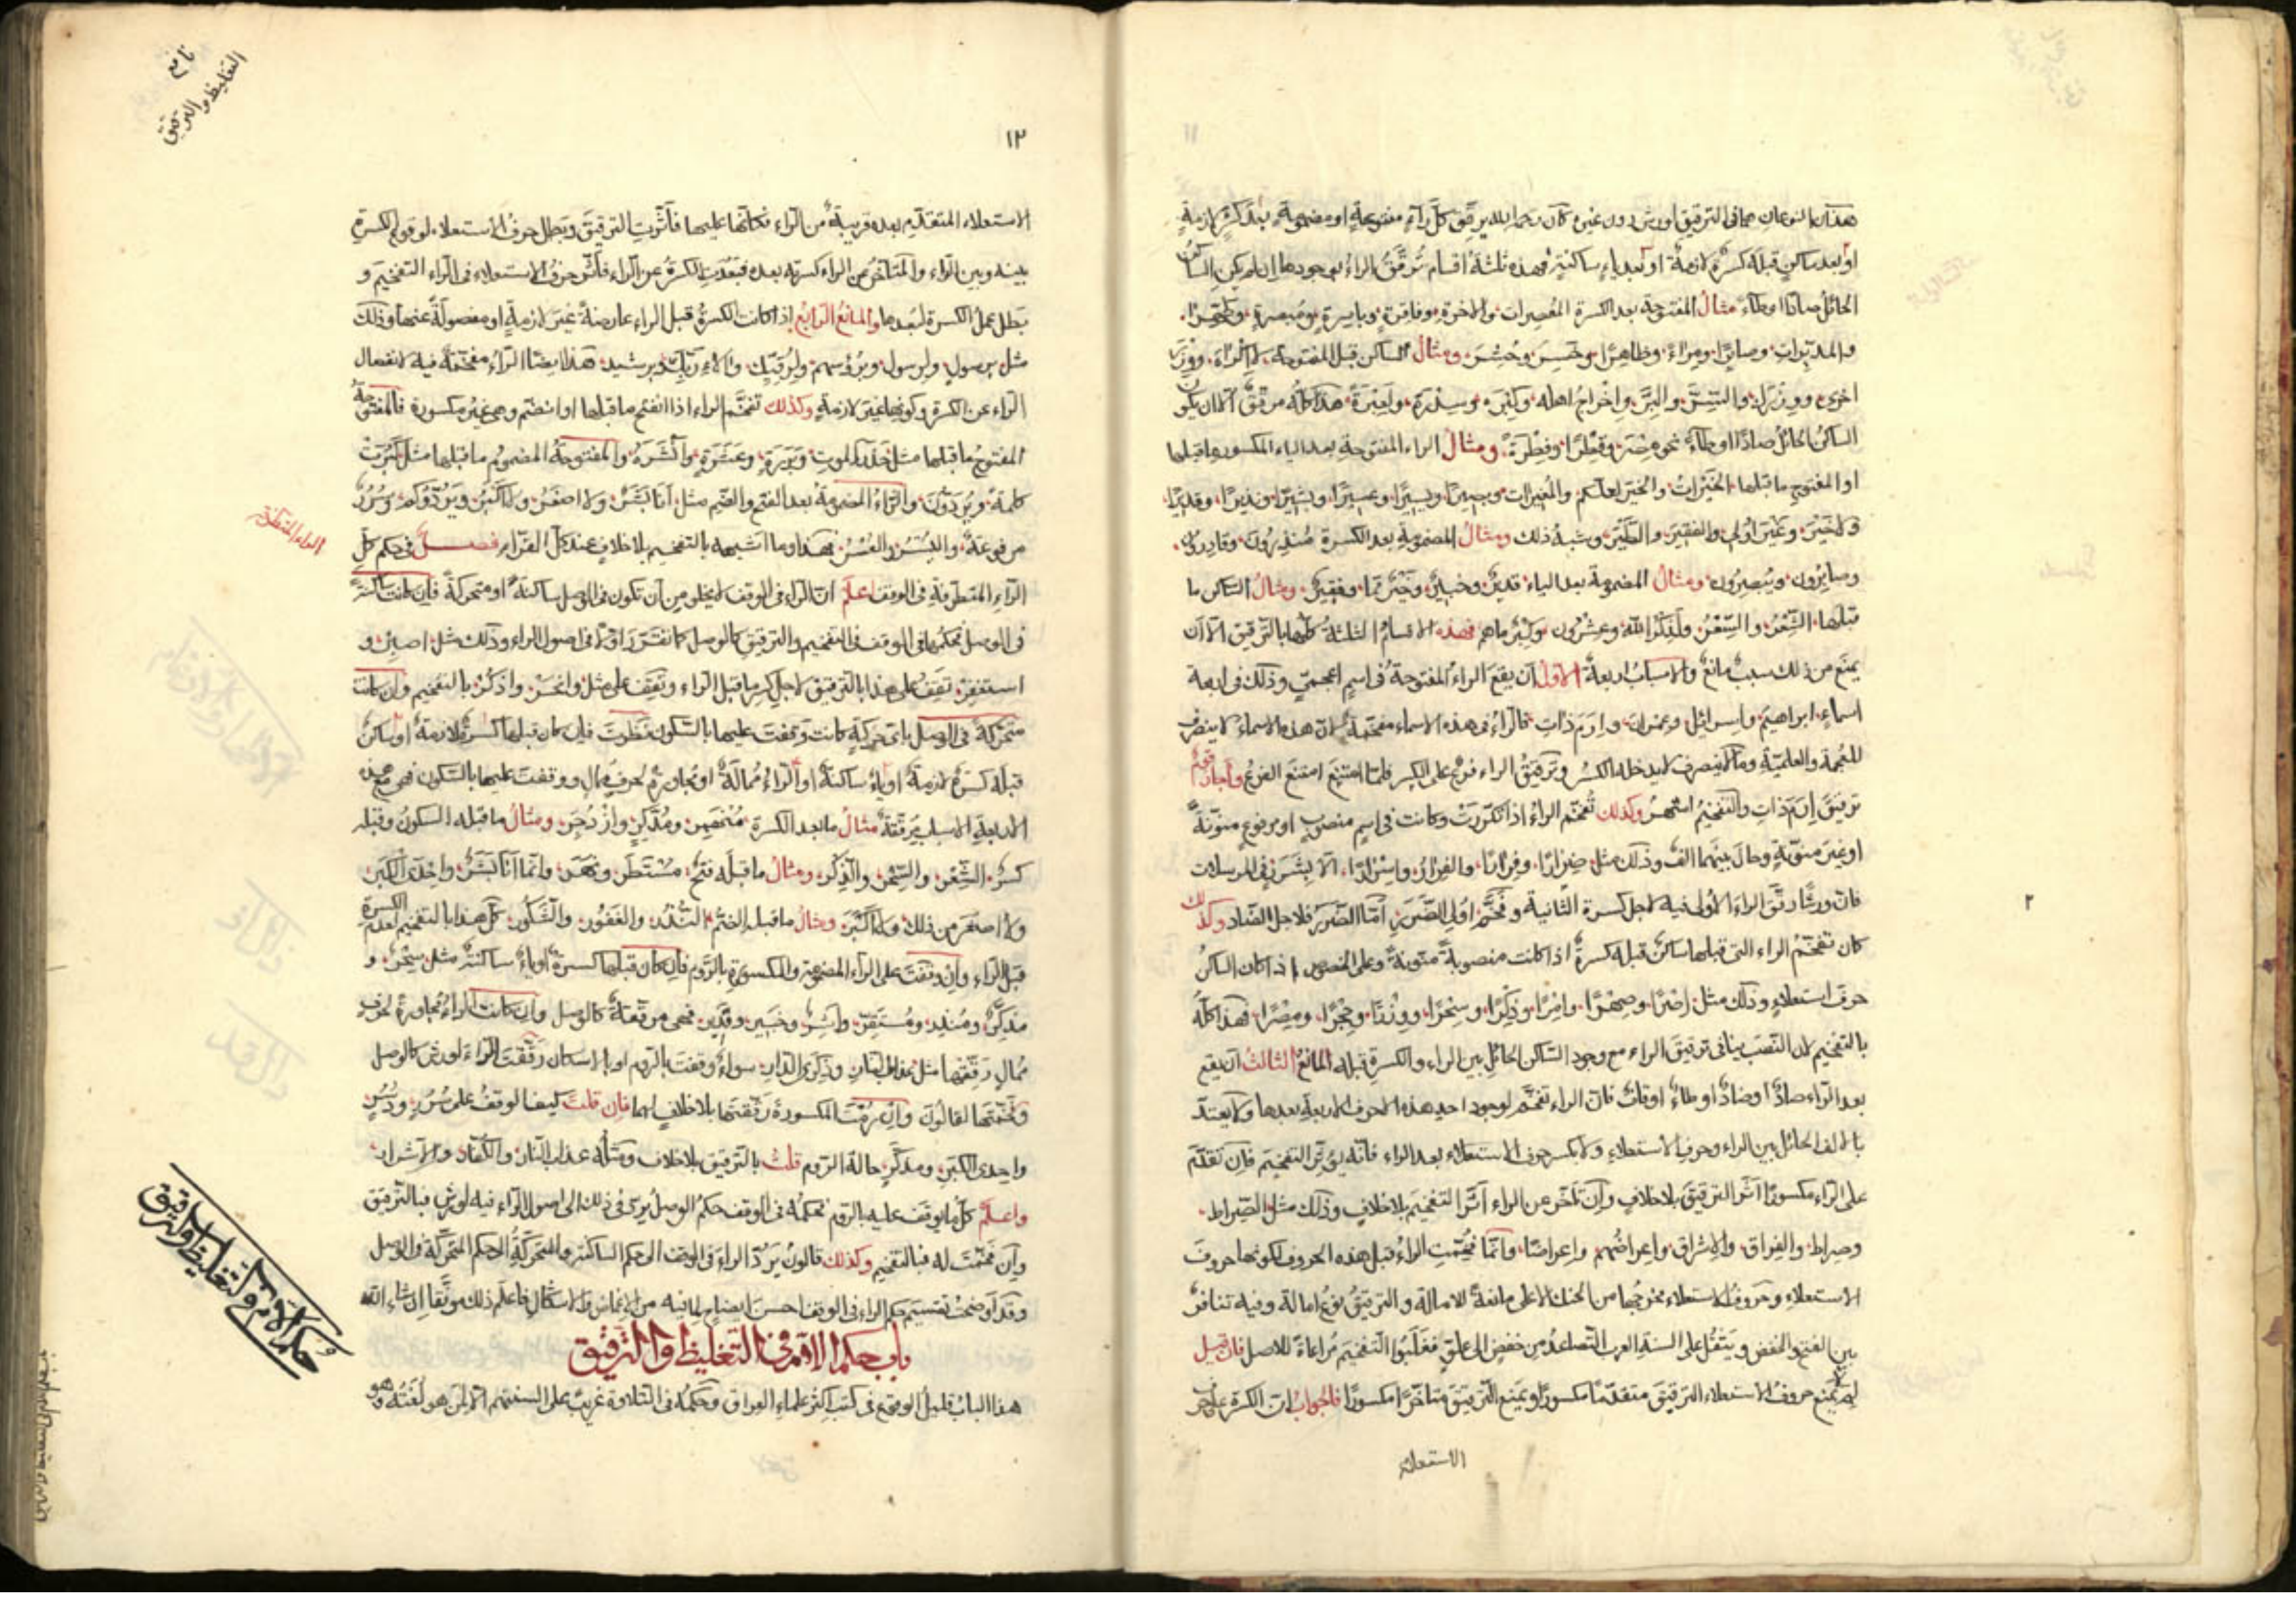 هذان النوعان هما في الترقيق لورش دون غيره كان رحمه الله يرقق كل راء مفتوحة او مضمومة بعد كسرة لازمة
او بعد ساكن قبله كسرة لازمة او بعد ياء ساكنة فهذه ثلثة اقسام ترقق الراء لوجودها ان لم يكن الساكن
الحائل صادا او طاء مثال المفتوحة بعد الكسرة المعصرات والاخرة وفاقرة وباسرة ومبصرة
والمدبرات وصابرا ومراء وظاهرا وخسر وحشر ومثال الساكن قبل المفتوحة لا اكراه ووزر
اخرى ووزرك والسر والبر واخراج اهله وكبره وسدرة ولعبرة هذا كله مرقق الا ان يكون
الساكن الحائل صادا او طاء نحو مصر وقطرا وفطرة ومثال الراء المفتوحة بعد الياء المكسور ما قبلها
او المفتوح ما قبلها الخيرات والخير لعلكم والمغيرات ويسيرا وعسيرا وبشيرا ونذيرا وقديرا
ولا خير وغير اولي والفقير والطير وشبه ذلك ومثال المضمومة بعد الكسرة منذرون وقادرون
وصابرون ويبصرون ومثال المضمومة بعد الياء قدير وخبير وخير مما وفقير ومثال الساكن ما
قبلها الشعر والسحر ولذكر الله وعشرون وكبر ما هم فهذه الاقسام الثلثة كلها بالترقيق الا ان
يمنع من ذلك سبب مانع والاسباب اربعة الاول ان يقع الراء المفتوحة في اسم اعجمي وذلك في اربعة
اسماء ابراهيم واسرائيل وعمران وارم ذات فالراء في هذه الاسماء مفخمة لان هذه الاسماء لا ينصرف
للعجمة والعلمية وما لا ينصرف لا يدخله الكسر وترقيق الراء فرع على الكسر فلما امتنع امتنع الفرع واجاز قوم
ترقيق ارم ذات والتفخيم اشهر وكذلك تفخم الراء اذا تكررت وكانت في اسم منصوب او مرفوع منونة
او غير منونة وحال بينهما الف وذلك مثل ضرارا وفرارا والفرار واسرارا الا بشرر في المرسلات
فان ورشا رقق الراء الاولى فيه لاجل كسرة الثانية وفخم اولى الضرر اما الضرر فلاجل الضاد وكذلك
كان تفخم الراء التي قبلها ساكن قبله كسرة اذا كانت منصوبة منونة وعلى الخصوص اذا كان الساكن
حرف استعلاء وذلك مثل اصرا وصهرا وامرا وذكرا وسحرا ووزرا وحجرا ومصرا فهذا كله
بالتفخيم لان النصب ينافي ترقيق الراء مع وجود الساكن الحائل بين الراء والكسرة قبله المانع الثالث ان يقع
بعد الراء صاد او ضاد او طاء او قاف فان الراء تفخم لوجود احد هذه الاحرف الاربعة بعدها ولا يعتد
بالالف الحائل بين الراء وحرف الاستعلاء ولا بكسر حرف الاستعلاء بعد الراء فانه يؤثر التفخيم فان تقدم
على الراء مكسورا اثر الترقيق بلا خلاف وان تاخر عن الراء اثر التفخيم بلا خلاف وذلك مثل الصراط
وصراط والفراق والاشراق واعراضهم واعراضا وانما فخمت الراء قبل هذه الحروف لكونها حروف
الاستعلاء وحروف الاستعلاء مخرجها من الحنك الاعلى مانعة للامالة والترقيق نوع امالة وفيه تنافر
بين الفتح والخفض ويثقل على السنة العرب التصاعد من خفض الى علو فغلبوا التفخيم مراعاة للاصل فان قيل
لم لم يمنع حروف الاستعلاء الترقيق متقدما مكسورا ويمنع الترقيق متاخرا مكسورا فالجواب ان الكسرة على حرف
الاستعلاء
٢
١٢
مانع
التغليظ والترقيق
الاستعلاء المتقدم بعده قريبة من الراء فكانها عليها فاثرت الترقيق وبطل حرف الاستعلاء لوقوع الكسرة
بينه وبين الراء والمتاخر عن الراء كسرته بعده فبعدت الكسرة عن الراء فاثر حرف الاستعلاء في الراء التفخيم و
بطل عمل الكسرة لبعدها والمانع الرابع اذا كانت الكسرة قبل الراء عارضة غير لازمة او مفصولة عنها وذلك
مثل برسول ولرسول وبرؤسهم ولرقيك والاء ربك وبرشيد هذا ايضا الراء مفخمة فيه لانفصال
الراء عن الكسرة وكونها غير لازمة وكذلك تفخم الراء اذا انفتح ما قبلها او انضم وهي غير مكسورة فالمفتوحة
المفتوح ما قبلها مثل حذر الموت وبررة وعشرة وانشره والمفتوحة المضموم ما قبلها مثل كبرت
كلمة ويردون والراء المضمومة بعد الفتح والضم مثل انا بشر ولا اصغر ولا اكبر ويردوكم وسرر
مرفوعة واليسر والعسر فهذا وما اشبهه بالتفخيم بلا خلاف عند كل القراء فصل في حكم كل
الراء المتطرفة
الراء المتطرفة في الوقف اعلم ان الراء في الوقف لا يخلو من ان تكون في الوصل ساكنة او متحركة فان كانت ساكنة
في الوصل فحكمها في الوقف في التفخيم والترقيق كالوصل كما تقرر اولا في اصول الراء وذلك مثل اصبر و
استغفر تقف على هذا بالترقيق لاجل كسر ما قبل الراء وتقف على مثل وانحر واذكر بالتفخيم وان كانت
متحركة في الوصل باي حركة كانت وقفت عليها بالسكون نظرت فان كان قبلها كسرة لازمة او ساكن
قبله كسرة لازمة او ياء ساكنة او الراء ممالة او مجاورة لحرف ممال ووقفت عليها بالسكون فهي مع هذه
الاربعة الاسباب مرققة مثال ما بعد الكسرة منهمر ومدكر وازدجر ومثال ما قبله السكون وقبله
كسر الشعر والسحر والذكر ومثال ما قبله فتح مستطر ونهر وانما انا بشر واحدى الكبر
ولا اصغر من ذلك ولا اكبر ومثال ما قبله الضم النذر والغفور والشكور كل هذا بالتفخيم لعدم الكسرة
قبل الراء وان وقفت على الراء المضمومة والمكسورة بالروم فان كان قبلها كسرة او ياء ساكنة مثل سحر و
مذكر ومنذر ومستقر واشر وخبير وقدير فهي مرققة كالوصل وان كانت الراء مجاورة لحرف
ممال رققتها مثل عذاب النار وذكرى الدار سواء وقفت بالروم او بالاسكان رققت الراء لورش كالوصل
وفخمتها لقالون وان رمت المكسورة رققتها بلا خلاف لهما فان قلت كيف الوقف على سرر ودسر
واحدى الكبر ومدكر حالة الروم قلت بالترقيق بلا خلاف ومثله عذاب النار والكفار والاشرار
واعلم كل ما يوقف عليه بالروم فحكمه في الوقف حكم الوصل يرى في ذلك الى اصول الراء فيه لورش فبالترقيق
وان فخمت له فبالتفخيم وكذلك قالون يرد الراء في الوقف الى حكم الساكنة والمتحركة الى حكم المتحركة في الوصل
وقد اوضحت تقسيم حكم الراء في الوقف احسن ايضاح لما فيه من الاغماض والاشكال فاعلم ذلك موفقا ان شاء الله
باب حكم اللام في التغليظ والترقيق
حكم اللام في التغليظ والترقيق
هذا الباب قليل الوقوع في كتب اكثر علماء العراق وحكمه في التلاوة غريب على السنتهم الا لمن هو لغته وهو